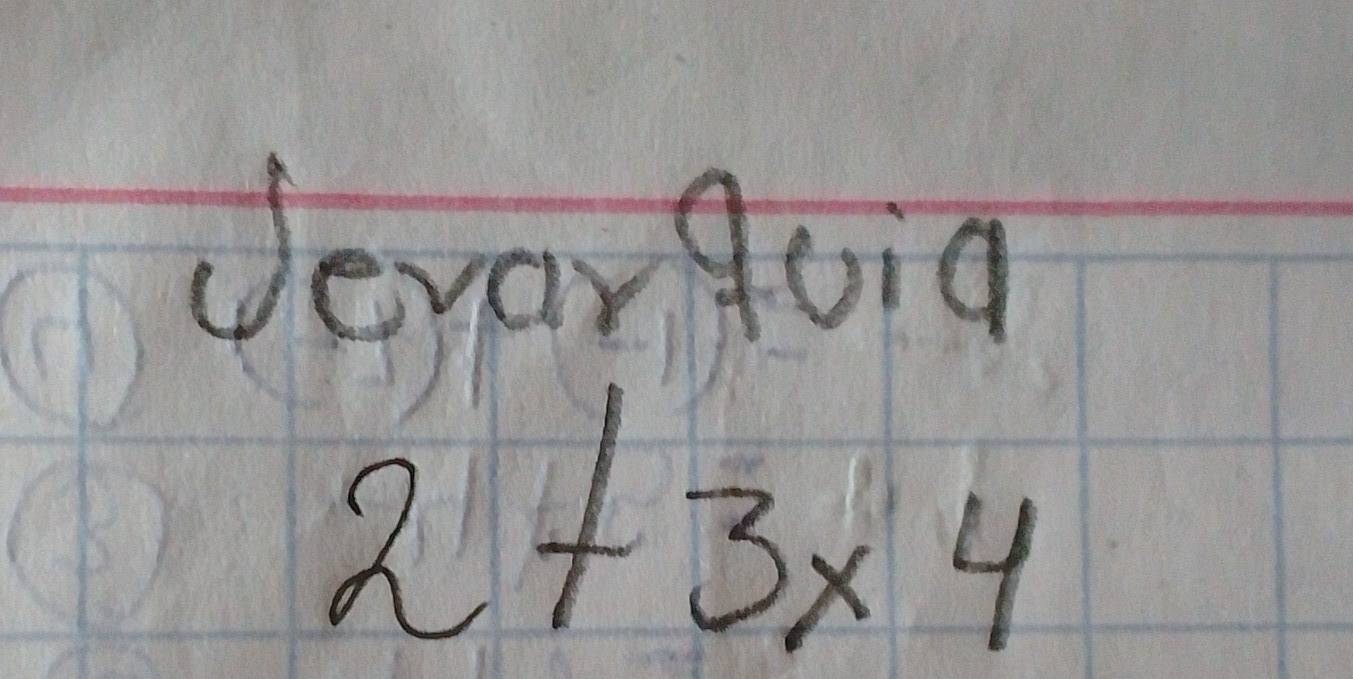 Jerarquia
2 + 3 x 4